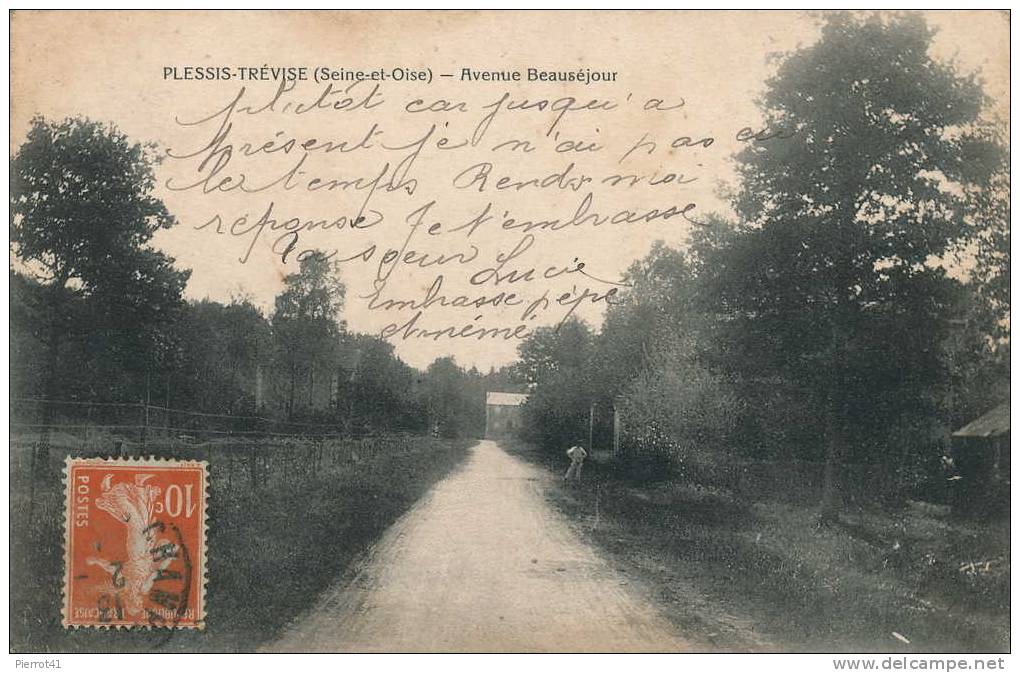 PLESSIS-TRÉVISE (Seine-et-Oise) — Avenue Beauséjour
plutôt car jusqu'a
présent je n'ai pas eu
le temps Rends moi
réponse Je t'embrasse
Ta soeur Lucie
Embrasse pépe
et mémé
10c
POSTES
REPUBLIQUE FRANÇAISE
2
Pierrot41
www.delcampe.net